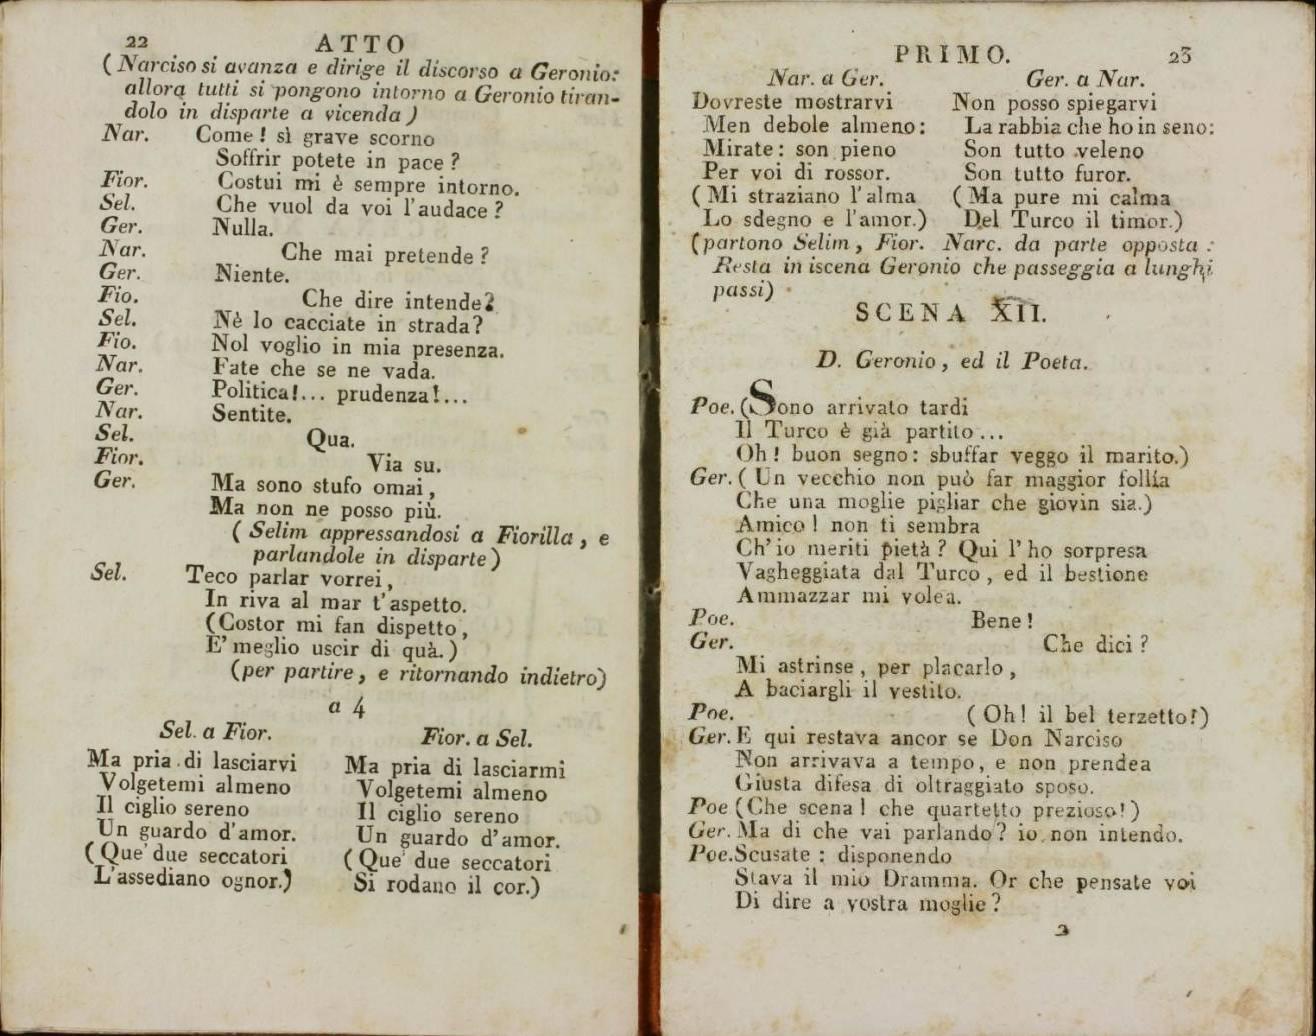 22 ATTO
( Narciso si avanza e dirige il discorso a Geronio:
allora tutti si pongono intorno a Geronio tiran-
dolo in disparte a vicenda )
Nar. Come ! sì grave scorno
Soffrir potete in pace ?
Fior. Costui mi è sempre intorno.
Sel. Che vuol da voi l'audace ?
Ger. Nulla.
Nar. Che mai pretende ?
Ger. Niente.
Fio. Che dire intende?
Sel. Nè lo cacciate in strada?
Fio. Nol voglio in mia presenza.
Nar. Fate che se ne vada.
Ger. Politica!... prudenza!...
Nar. Sentite.
Sel. Qua.
Fior. Via su.
Ger. Ma sono stufo omai,
Ma non ne posso più.
( Selim appressandosi a Fiorilla, e
parlandole in disparte )
Sel. Teco parlar vorrei,
In riva al mar t'aspetto.
(Costor mi fan dispetto,
E' meglio uscir di quà.)
(per partire, e ritornando indietro)
a 4
Sel. a Fior.
Ma pria di lasciarvi
Volgetemi almeno
Il ciglio sereno
Un guardo d'amor.
(Que' due seccatori
L'assediano ognor.)
Fior. a Sel.
Ma pria di lasciarmi
Volgetemi almeno
Il ciglio sereno
Un guardo d'amor.
(Que' due seccatori
Si rodano il cor.)
PRIMO. 23
Nar. a Ger.
Dovreste mostrarvi
Men debole almeno:
Mirate: son pieno
Per voi di rossor.
( Mi straziano l'alma
Lo sdegno e l'amor.)
Ger. a Nar.
Non posso spiegarvi
La rabbia che ho in seno:
Son tutto veleno
Son tutto furor.
(Ma pure mi calma
Del Turco il timor.)
(partono Selim, Fior. Narc. da parte opposta :
Resta in iscena Geronio che passeggia a lunghi
passi)
SCENA XII.
D. Geronio, ed il Poeta.
Poe. (Sono arrivato tardi
Il Turco è già partito...
Oh ! buon segno: sbuffar veggo il marito.)
Ger. ( Un vecchio non può far maggior follía
Che una moglie pigliar che giovin sia.)
Amico ! non ti sembra
Ch' io meriti pietà ? Qui l' ho sorpresa
Vagheggiata dal Turco, ed il bestione
Ammazzar mi volea.
Poe. Bene !
Ger. Che dici ?
Mi astrinse, per placarlo,
A baciargli il vestito.
Poe. ( Oh! il bel terzetto!)
Ger. E qui restava ancor se Don Narciso
Non arrivava a tempo, e non prendea
Giusta difesa di oltraggiato sposo.
Poe (Che scena ! che quartetto prezioso!)
Ger. Ma di che vai parlando ? io non intendo.
Poe. Scusate : disponendo
Stava il mio Dramma. Or che pensate voi
Di dire a vostra moglie ?
2